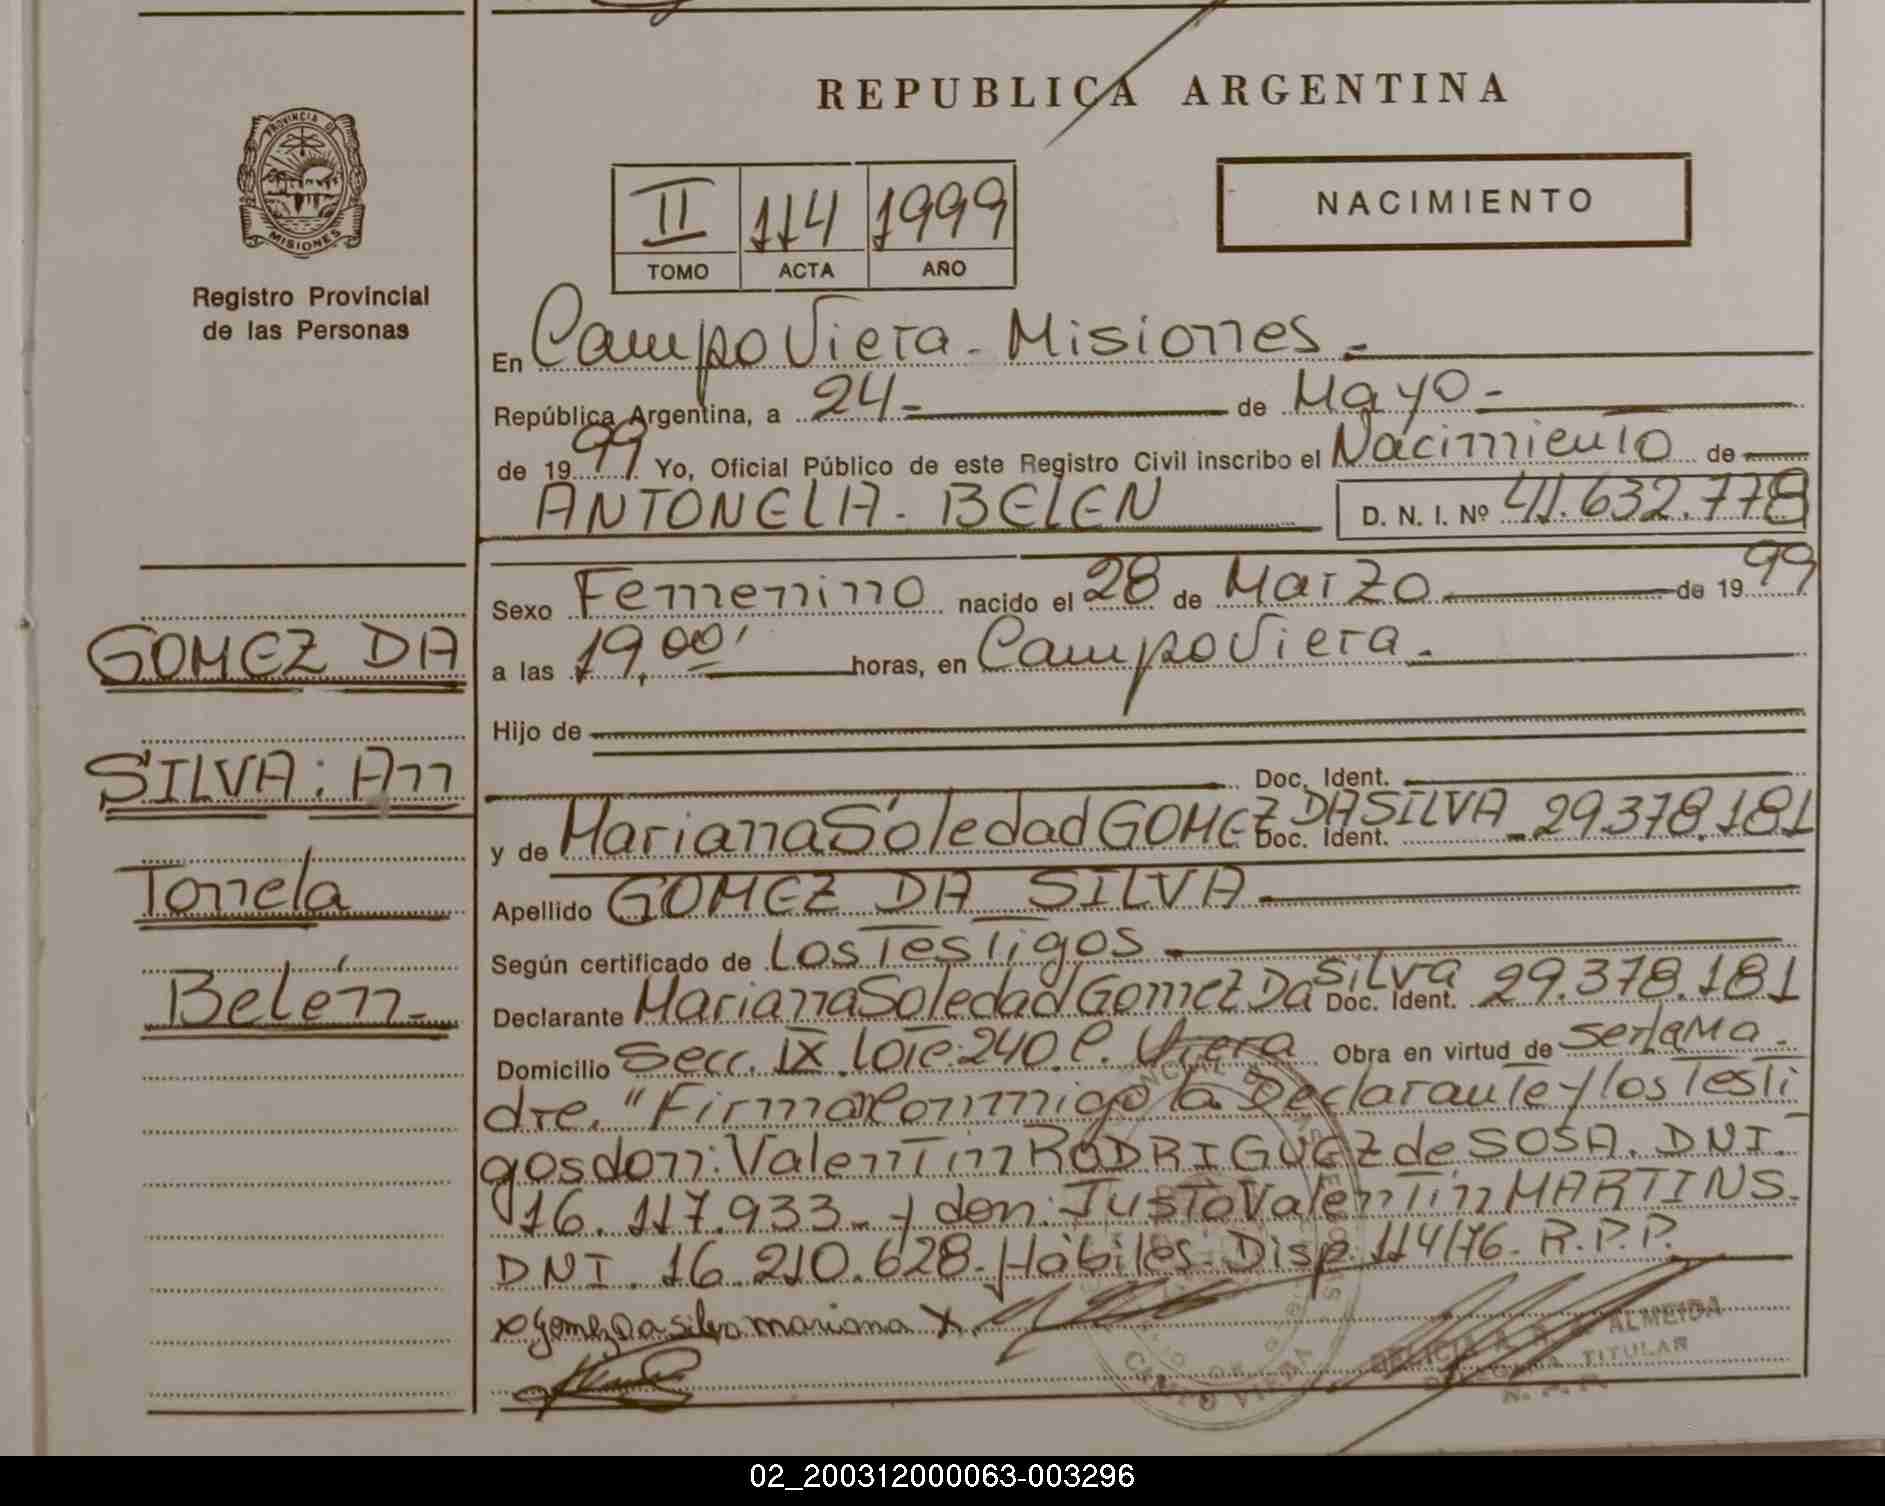 REPUBLICA ARGENTINA
PROVINCIA DE
MISIONES
Registro Provincial
de las Personas
II 114 1999
TOMO ACTA AÑO
NACIMIENTO
En Campo Viera - Misiones -
República Argentina, a 24 - de Mayo -
de 1999 Yo, Oficial Público de este Registro Civil inscribo el Nacimiento de
ANTONELA - BELEN D. N. I. Nº 41.632.778
Sexo Femenino nacido el 28 de Marzo de 1999
a las 19,00' horas, en Campo Viera -
Hijo de
Doc. Ident.
y de Mariana Soledad GOMEZ DA SILVA - Doc. Ident. 29.378.181
Apellido GOMEZ DA SILVA
Según certificado de Los Testigos
Declarante Mariana Soledad Gomez Da Silva Doc. Ident. 29.378.181
Domicilio Secc. IX Lote: 240 C. Viera Obra en virtud de ser la Ma-
dre. "Firman conmigo la Declarante y los Testi
gos don: Valentin RODRIGUEZ de SOSA. DNI.
16.117.933 - y don: Justo Valentin MARTINS.
DNI. 16.210.628. Hábiles. Disp. 114/76 - R.P.P.
x Gomez Da Silva mariana x
ALMEIDA
TITULAR
CAMPO VIERA
GOMEZ DA
SILVA: An
Tonela
Belén -
02_200312000063-003296